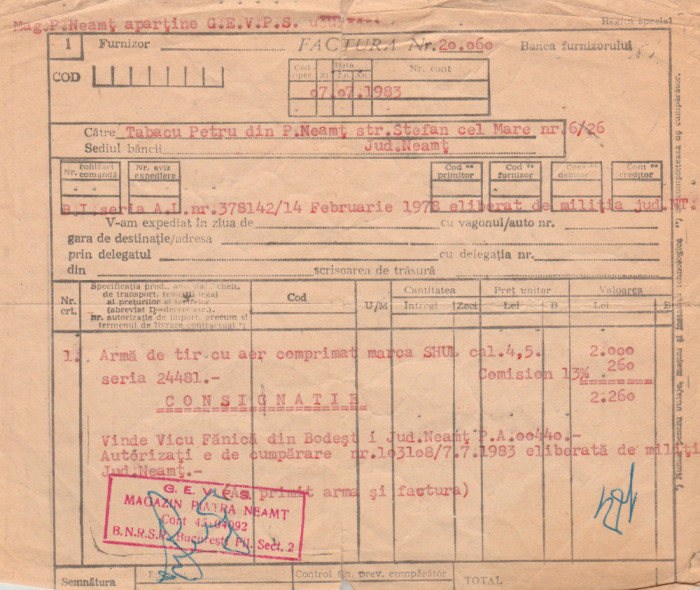 Mag.P.Neamţ aparţine G.E.V.P.S.
Regim special
1 Furnizor FACTURA Nr.20.060 Banca furnizorului
COD
Cod. oper. Data Nr. cont
Zi Ln. An.
07.07.1983
Către Tabacu Petru din P.Neamţ str.Stefan cel Mare nr.6/26
Sediul băncii Jud.Neamţ
Nr. contract comandă
Nr. aviz expediere
Cod ** primitor
Cod ** furnizor
Cont ** debitor
Cont ** creditor
B.I.seria A.L.nr.378142/14 Februarie 1978 eliberat de miliţia jud.NT.
V-am expediat în ziua de cu vagonul/auto nr.
gara de destinaţie/adresa
prin delegatul cu delegaţia nr.
din scrisoarea de trăsură
Nr. crt.
Specificaţia prod.
de transport, temeiul legal
al preţurilor şi tarifelor
nr. autorizaţie de import, precum şi
termenul de livrare contractual *)
Cod
U/M
Cantitatea
Întregi Zeci
Preţ unitar
Lei B
Valoarea
Lei B
1. Armă de tir cu aer comprimat marca SHUL cal.4,5. 2.000
seria 24481.- Comision 13% 260
C O N S I G N A T I E 2.260
Vinde Vicu Fănică din Bodeşt i Jud.Neamţ P.A.00440.-
Autorizaţi e de cumpărare nr.103108/7.7.1983 eliberată de miliţi
Jud.Neamţ.-
(Am primit arma şi factura)
G. E. V. P.S.
MAGAZIN PIATRA NEAMT
Cont
B.N.R.S.R. Bucureşti Fil. Sect. 2
Semnătura
Control fin. prev. cumpărător
TOTAL